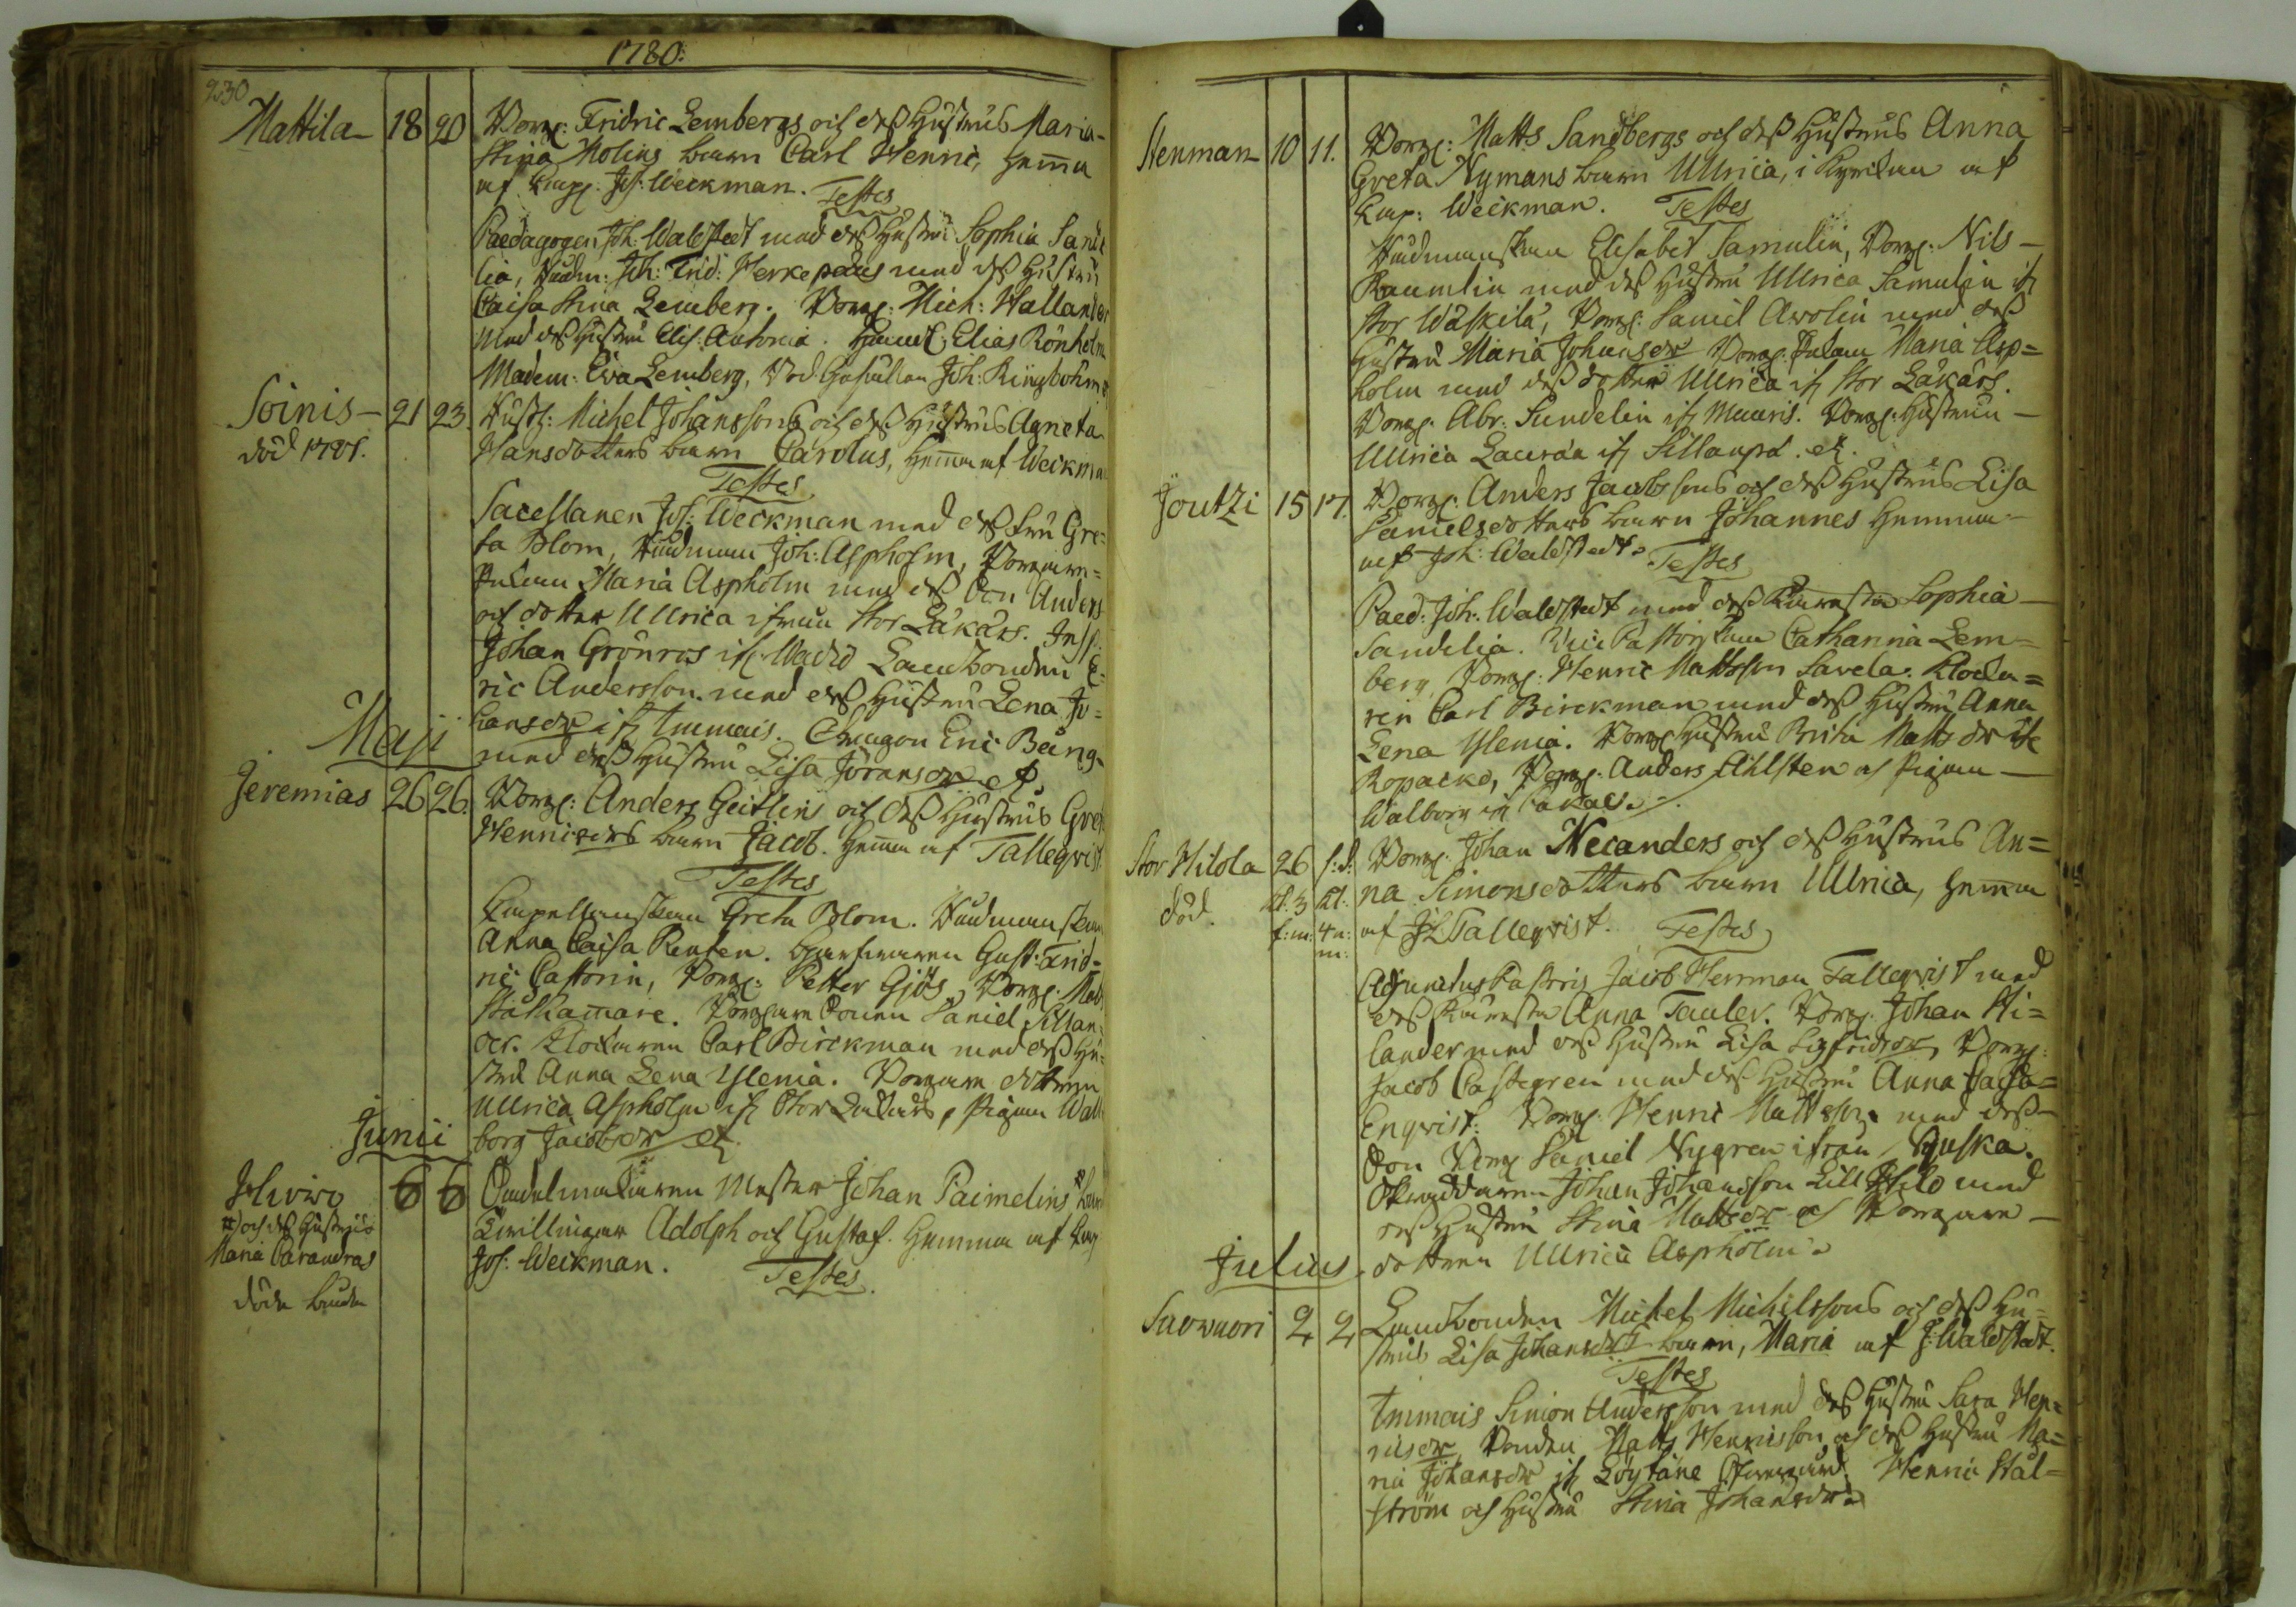 1780.
230
Mattila 18 20 Borg: Fridric Lembergs och deß Hustrus Maria
Stina Molins barn Carl Henric, hema
af Cap: Jos: Weckman. Testes
Paedagogen Joh: Waldstedt med deß Hustru Sophia Sande
lia, Joh: Frid: med deß Hustru
Caisa Stina Lemberg. Borg: Mich: Wallander
med deß Hustru Elis: Antonia. Elias Rönholm
Madem: Eva Lemberg, Joh: Ringbohm
Soinis 21 23. Michel Johanssons och deß Hustrus Agneta
död 1781.
Hansdotters barn Carolus, hema af Weckman
Testes
Sacellanen Jos: Weckman med deß fru Gre=
ta Blom, Joh: Aspholm, Borgare=
Maria Aspholm med deß Son Anders
och dotter Ullrica ifrån Stor Läkärs. Insp:
Johan Grönros if Landbonden E=
ric Andersson med deß Hustru Lena Jo=
hansdr if Immais. Dragon Eric Bäng
med deß Hustru Lisa Göransdr etc.
Maji
Jeremias 26 26. Borg: Anders Geitlins och deß Hustrus Greta
Henricsdrs barn Jacob. hema af Tallequist
Testes
Capellanskan Greta Blom.
Anna Caisa Renfen. Garfvaren Gust: Frid=
ric Castorin, Borg: Petter Gjös, Borg: Matts
Stålhamare. Borgare Sonen Daniel Sillan=
der. Klockaren Carl Birckman med deß Hu=
stru Anna Lena Ylenia. Borgare dottren
Ullrica Aspholm if Stor Läkärs, Pigan Wal
borg Jacobsdr etc.
Junii
6 6 Mester Johan Paimelins # barn
#) och deß Hustrus
Maria Carandras
döda bända
Tvillingar Adolph och Gustaf. Hemma af Cap
Jos: Weckman. Testes.
Stenman 10 11. Borg: Matts Sandbergs och deß Hustrus Anna
Greta Nymans barn Ullrica, i Kyrckan af
Cap: Weckman. Testes
Elisabet Samulin, Borg: Nils
Raumlin med deß Hustru Ullrica Samulin if
Stor Wäskilä, Borg: Daniel Arolin med deß
Hustru Maria Johansdr Borg: Maria Asp=
holm med deß dotter Ullrica if Stor Läkärs.
Borg: Abr: Sundelin if Mauris. Borg: Hustrun
Ullrica Lauræa if Sillanpä. etc.
Joutzi 15 17. Borg: Anders Jacobssons och deß Hustrus Lisa
Danielsdotters barn Johannes Hemma
af Joh: Waldstedt. Testes
Paed: Joh: Waldstedt med deß Käresta Sophia
Sandelia. Vice Pastorskan Catharina Lem=
berg, Borg: Henric Mattsson Savela. Klocka=
ren Carl Birckman med deß Hustru Anna
Lena Ylenia. Borg: Hustru Brita Mattsdr if
Ropacko, Borg: Anders Ahlsten och Pigan
Walborg if
Stor Hilola 26 s: d: Borg: Johan Necanders och deß Hustrus An=
död. kl: 3 kl: na Simonsdotters barn Ullrica, hema
f: m: 4 e: m: af JH Tallequist. Testes
Adjunctus Pastoris Jacob Herman Tallequist med
deß Käresta Anna Tauler. Borg: Johan Hi=
lander med deß Hustru Lisa Sigfridsdr, Borg:
Jacob Castegren med deß Hustru Anna Caisa
Enqvist: Borg: Henric Mattsson med deß
Son Borg: Daniel Nygren ifrån Ruska.
Skräddaren Johan Johansson Lill Hilo med
deß Hustru Stina Mattsdr och Borgare
dottren Ullrica Aspholm.
Julius
Saovuori 2 2 Landbonden Michel Michelssons och deß Hu=
strus Lisa Johansdrs barn, Maria af J: Waldstedt.
Testes
Immais Simon Andersson med deß Hustru Sara Hen=
ricsdr, Bonden Matts Henricsson och deß Hustru Ma=
ria Johansdr if Löytäne Henric Stål=
ström och Hustru Stina Johansdr.